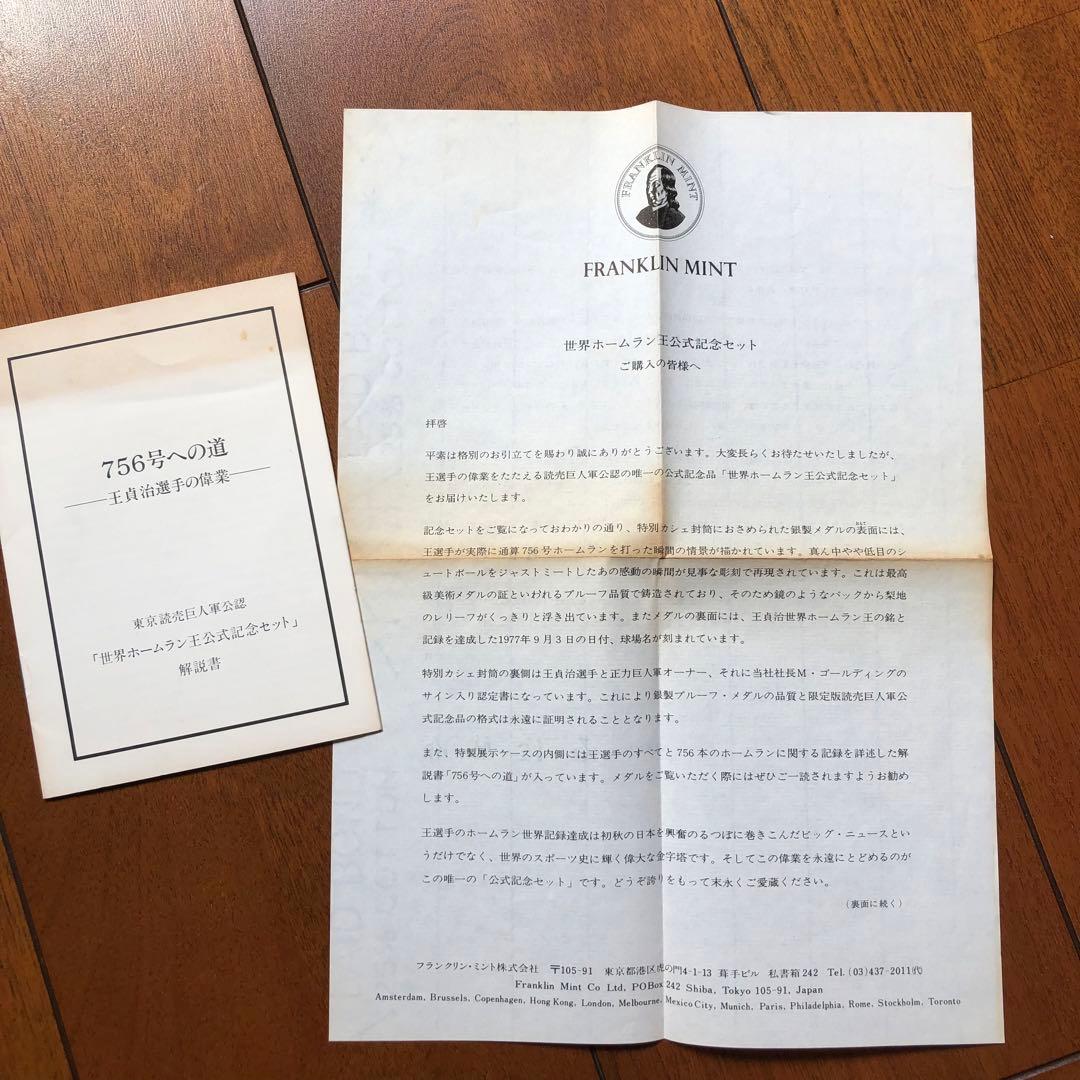 756号への道
――王貞治選手の偉業――
東京読売巨人軍公認
「世界ホームラン王公式記念セット」
解説書
FRANKLIN MINT
FRANKLIN MINT
世界ホームラン王公式記念セット
ご購入の皆様へ
拝啓
平素は格別のお引立てを賜わり誠にありがとうございます。大変長らくお待たせいたしましたが、
王選手の偉業をたたえる読売巨人軍公認の唯一の公式記念品「世界ホームラン王公式記念セット」
をお届けいたします。
記念セットをご覧になっておわかりの通り、特別カシェ封筒におさめられた銀製メダルの表面には、
王選手が実際に通算756号ホームランを打った瞬間の情景が描かれています。真ん中やや低目のシ
ュートボールをジャストミートしたあの感動の瞬間が見事な彫刻で再現されています。これは最高
級美術メダルの証といわれるプルーフ品質で鋳造されており、そのため鏡のようなバックから梨地
のレリーフがくっきりと浮き出ています。またメダルの裏面には、王貞治世界ホームラン王の銘と
記録を達成した1977年9月3日の日付、球場名が刻まれています。
特別カシェ封筒の裏側は王貞治選手と正力巨人軍オーナー、それに当社社長M・ゴールディングの
サイン入り認定書になっています。これにより銀製プルーフ・メダルの品質と限定版読売巨人軍公
式記念品の格式は永遠に証明されることとなります。
また、特製展示ケースの内側には王選手のすべてと756本のホームランに関する記録を詳述した解
説書「756号への道」が入っています。メダルをご覧いただく際にはぜひご一読されますようお勧め
します。
王選手のホームラン世界記録達成は初秋の日本を興奮のるつぼに巻きこんだビッグ・ニュースとい
うだけでなく、世界のスポーツ史に輝く偉大な金字塔です。そしてこの偉業を永遠にとどめるのが
この唯一の「公式記念セット」です。どうぞ誇りをもって末永くご愛蔵ください。
(裏面に続く)
フランクリン・ミント株式会社 〒105-91 東京都港区虎の門4-1-13 葺手ビル 私書箱242 Tel.(03)437-2011㈹
Franklin Mint Co Ltd, POBox 242 Shiba, Tokyo 105-91, Japan
Amsterdam, Brussels, Copenhagen, Hong Kong, London, Melbourne, Mexico City, Munich, Paris, Philadelphia, Rome, Stockholm, Toronto